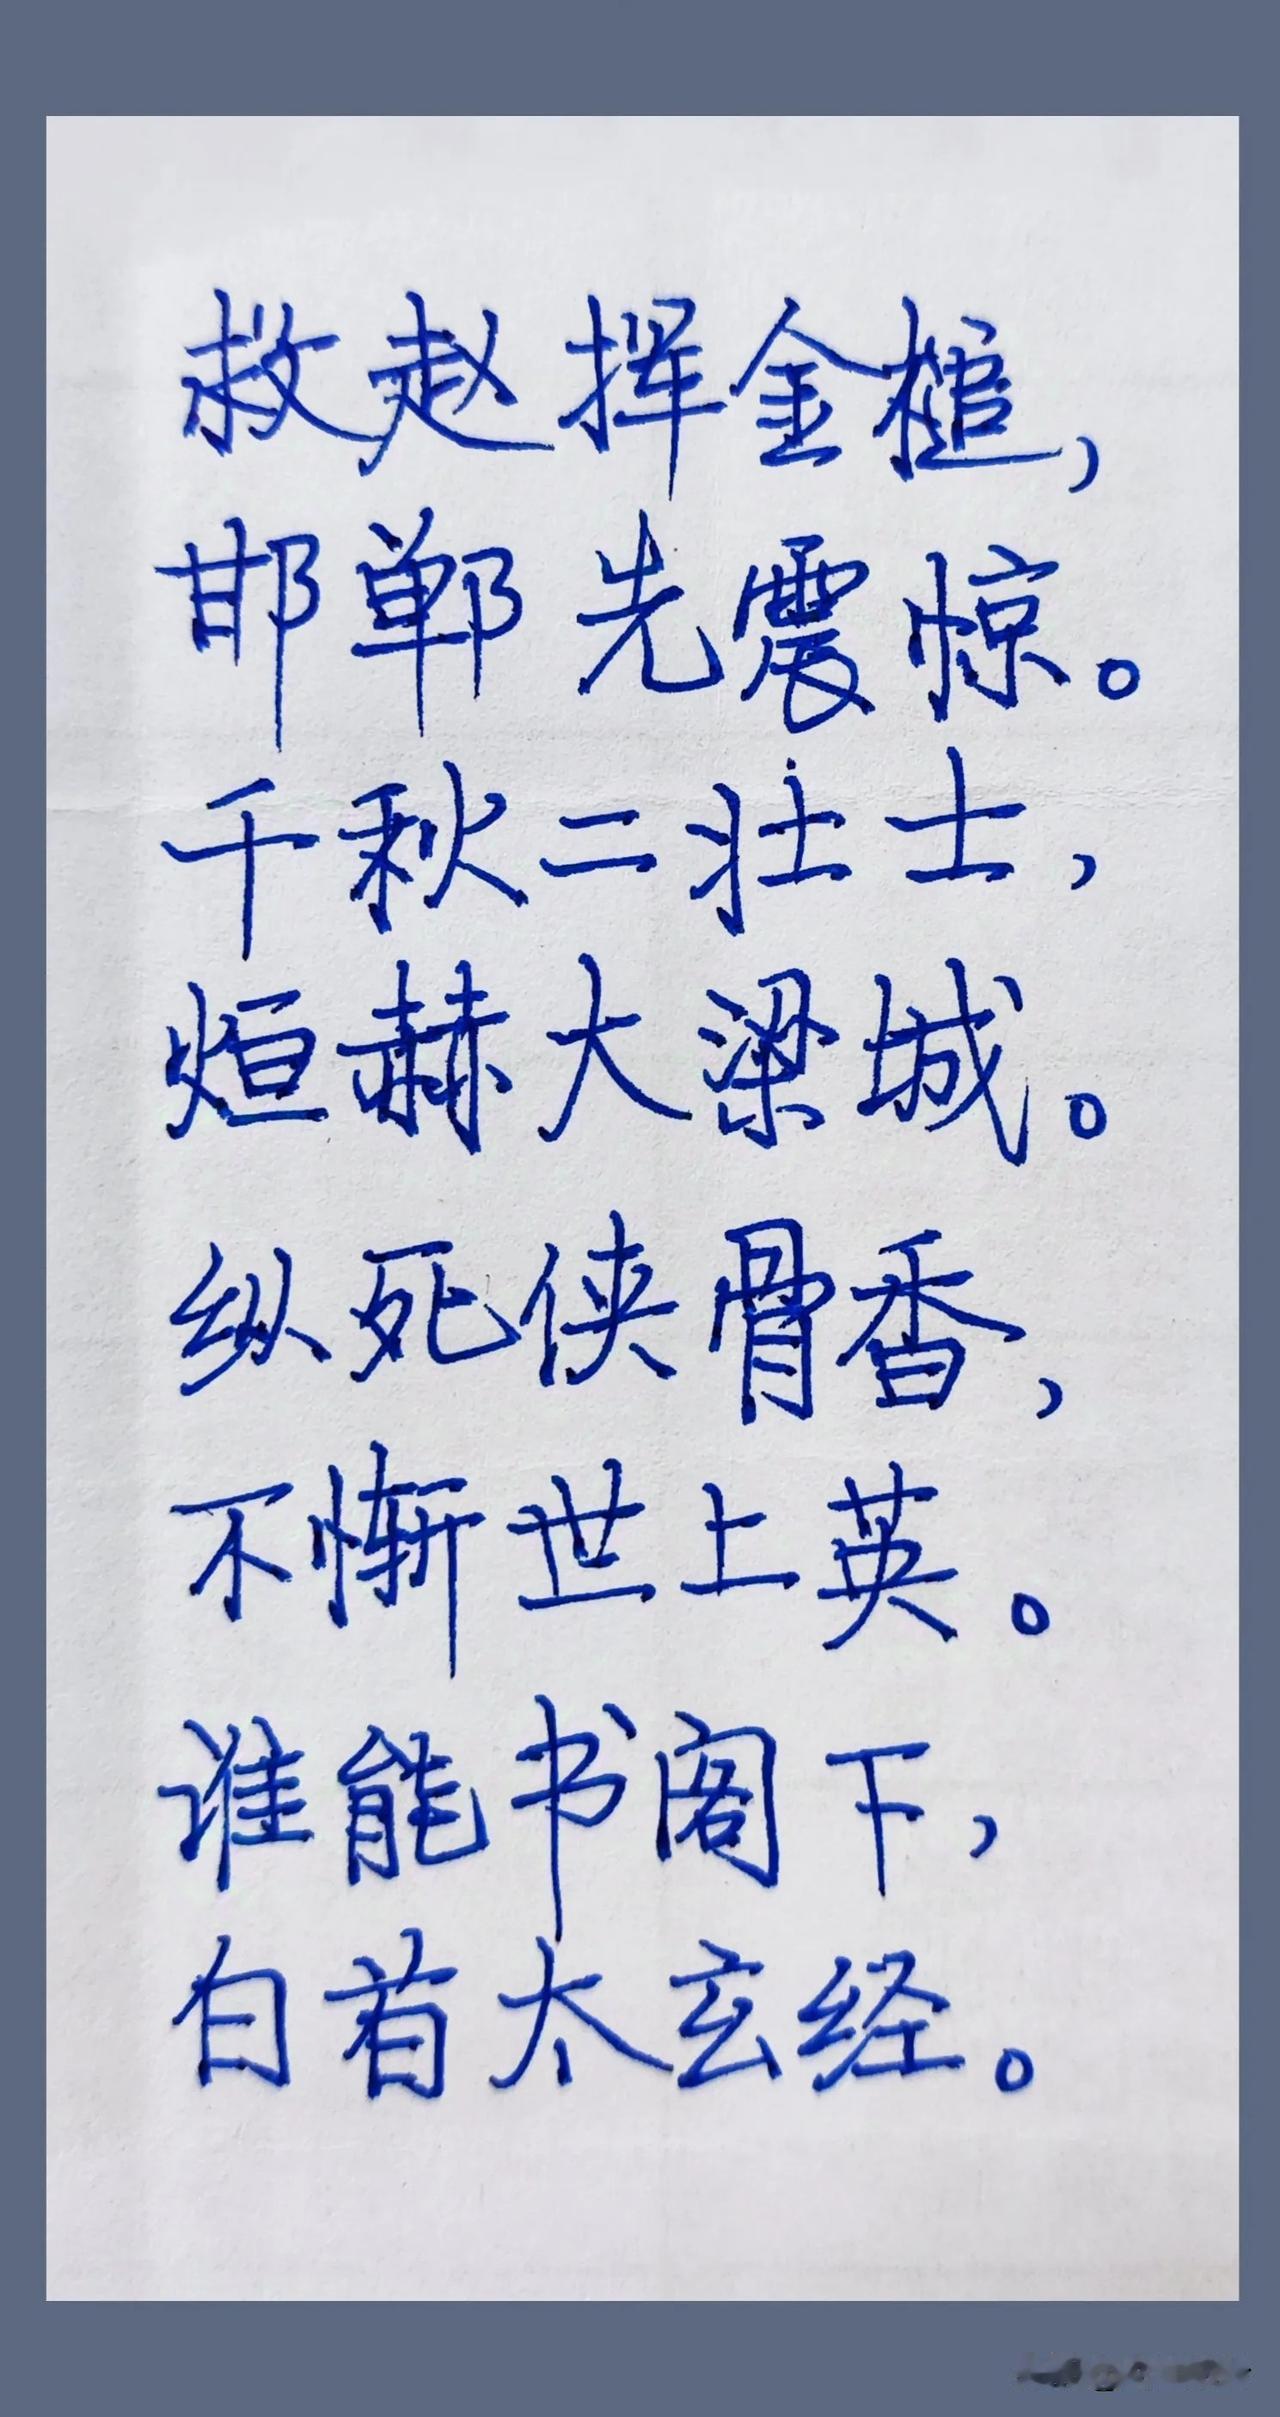 救赵挥金槌，
邯郸先震惊。
千秋二壮士，
烜赫大梁城。
纵死侠骨香，
不惭世上英。
谁能书阁下，
白首太玄经。